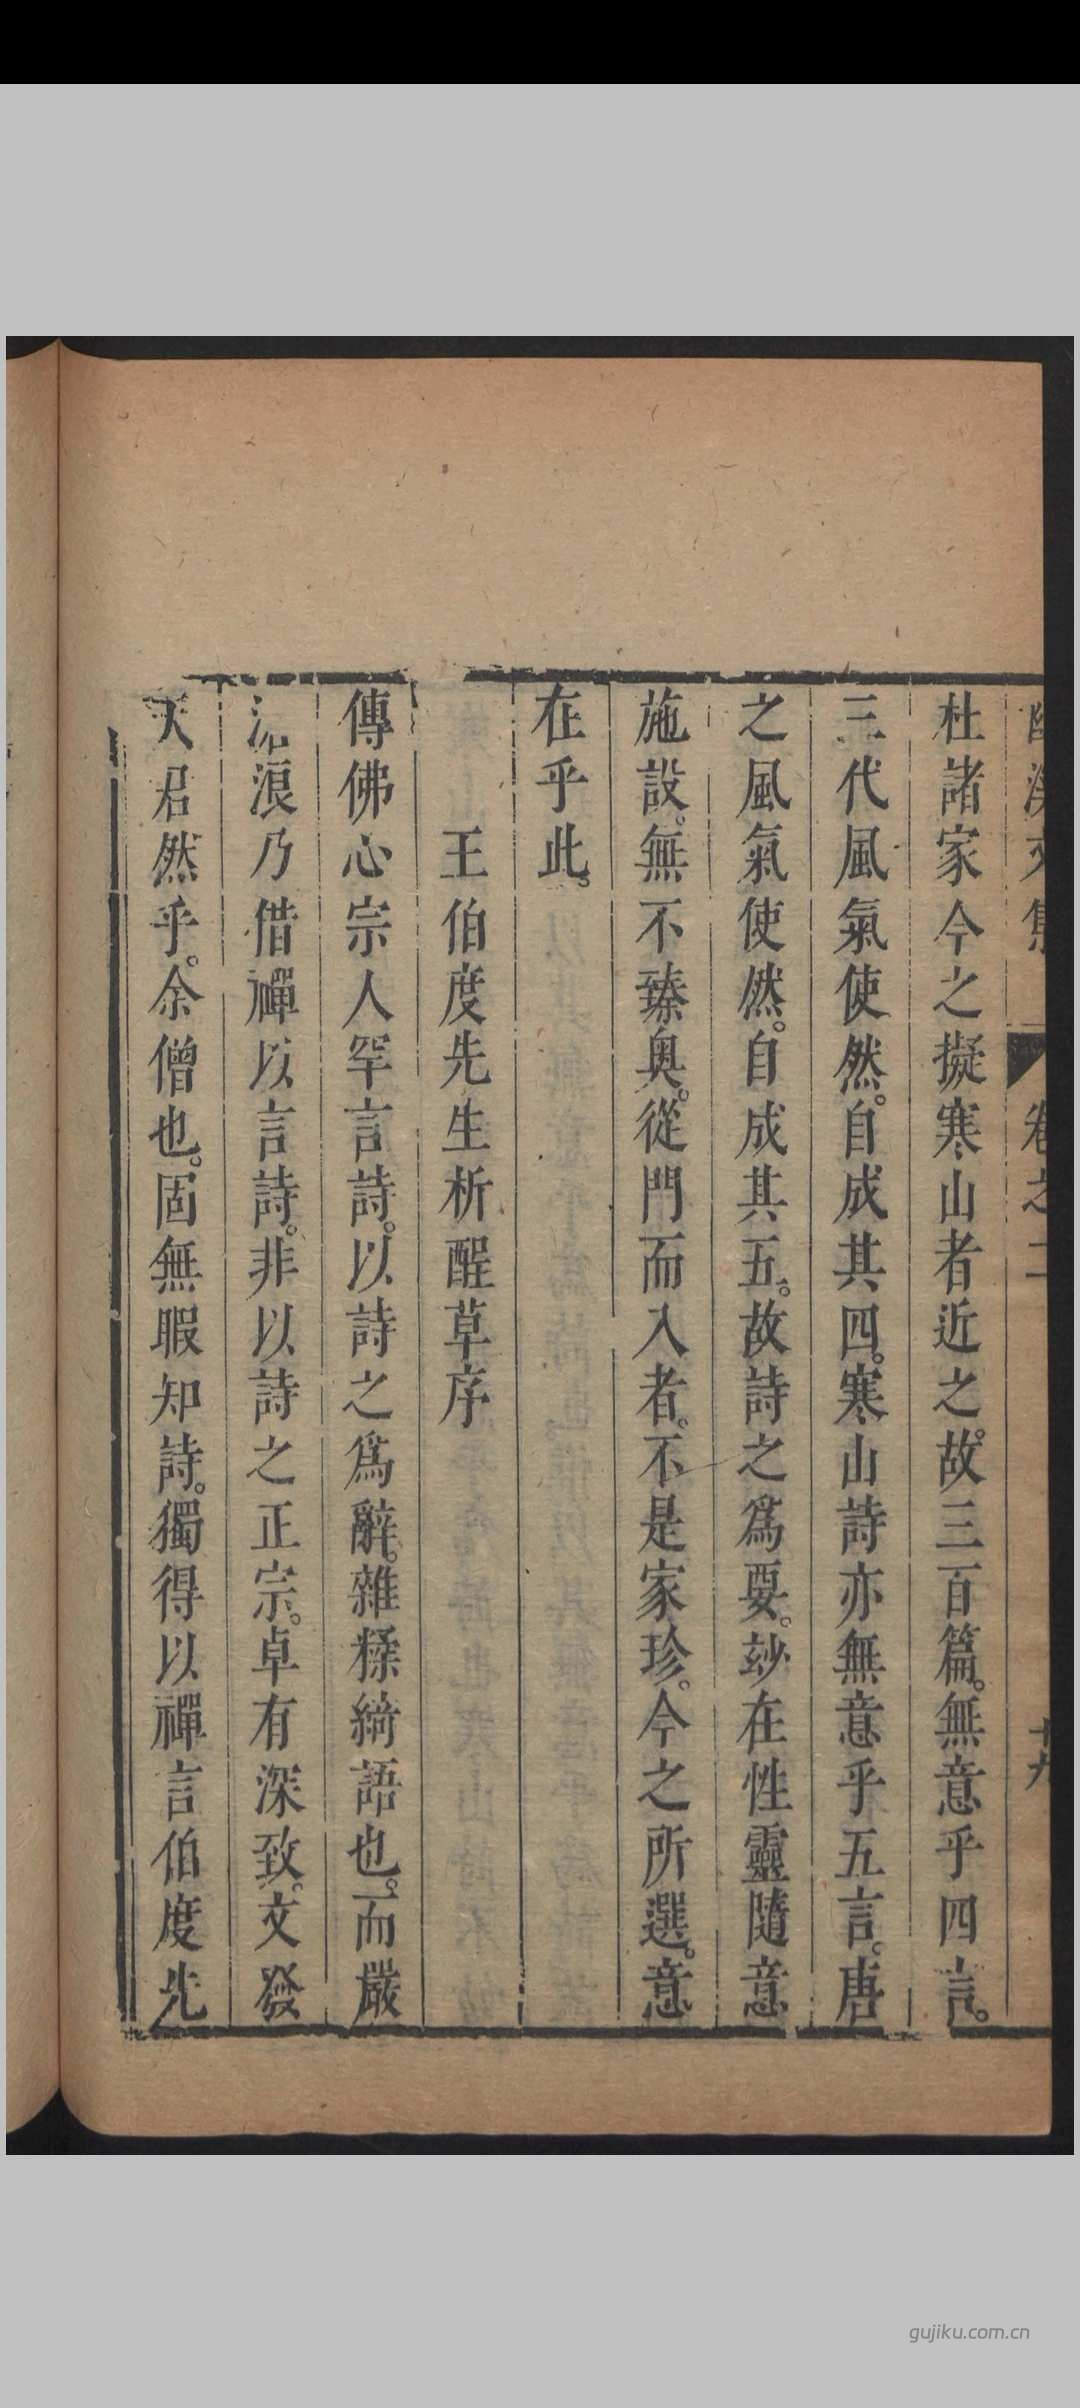 幽溪文集 卷之二 十九
杜諸家今之擬寒山者近之。故三百篇。無意乎四言。
三代風氣使然。自成其四。寒山詩亦無意乎五言。唐
之風氣使然。自成其五。故詩之爲要。玅在性靈隨意
施設。無不臻奧。從門而入者。不是家珍。今之所選。意
在乎此。
王伯度先生析醒草序
傳佛心宗人罕言詩。以詩之爲辭。雜糅綺語也。而嚴
滄浪乃借禪以言詩。非以詩之正宗。卓有深致。文發
天君然乎。余僧也。固無暇知詩。獨得以禪言伯度先
gujiku.com.cn